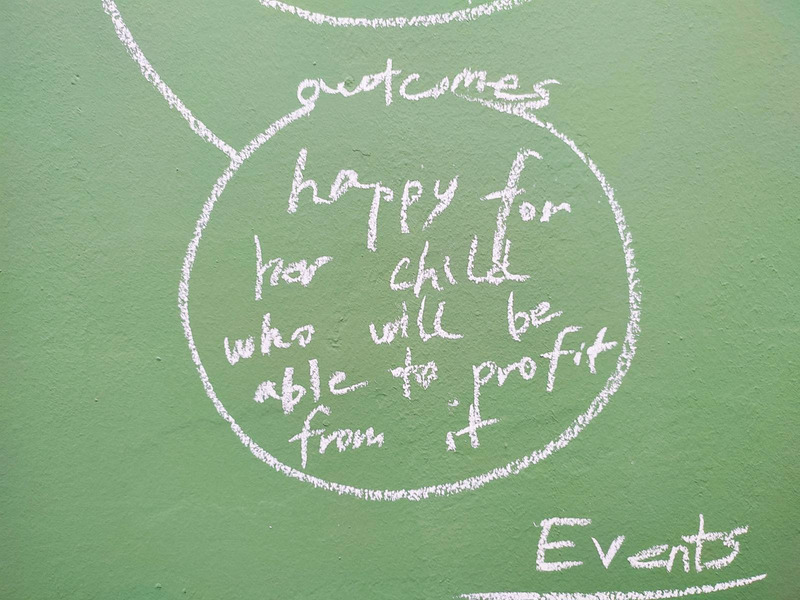 outcomes
happy for
her child
who will be
able to profit
from it
Events